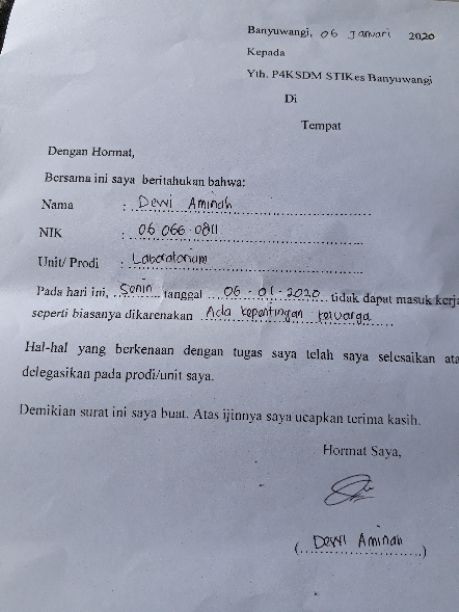 Banyuwangi, 06 Januari 2020
Kepada
Yth. P4KSDM STIKes Banyuwangi
Di
Tempat
Dengan Hormat,
Bersama ini saya beritahukan bahwa:
Nama : Dewi Aminah
NIK : 06 066.0811
Unit/ Prodi : Laboratorium
Pada hari ini, Senin tanggal 06 - 01 - 2020 tidak dapat masuk kerja
seperti biasanya dikarenakan Ada kepentingan keluarga
Hal-hal yang berkenaan dengan tugas saya telah saya selesaikan ata
delegasikan pada prodi/unit saya.
Demikian surat ini saya buat. Atas ijinnya saya ucapkan terima kasih.
Hormat Saya,
(Dewi Aminah)